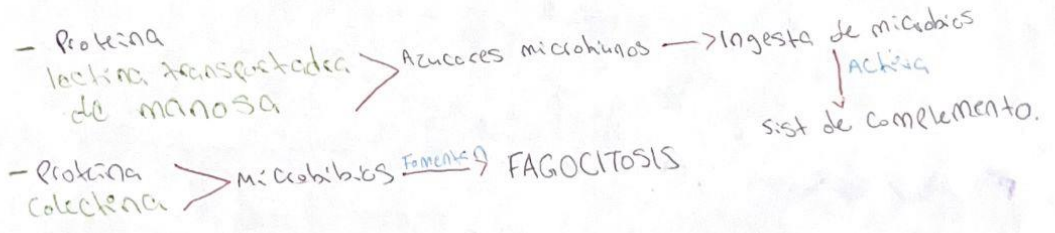 - Proteina
lectina transportadora
de manosa
Azucares microbianos → Ingesta de microbios
Activa
Sist de complemento.
- Proteina
Colectina
Microbibios Fomenta → FAGOCITOSIS